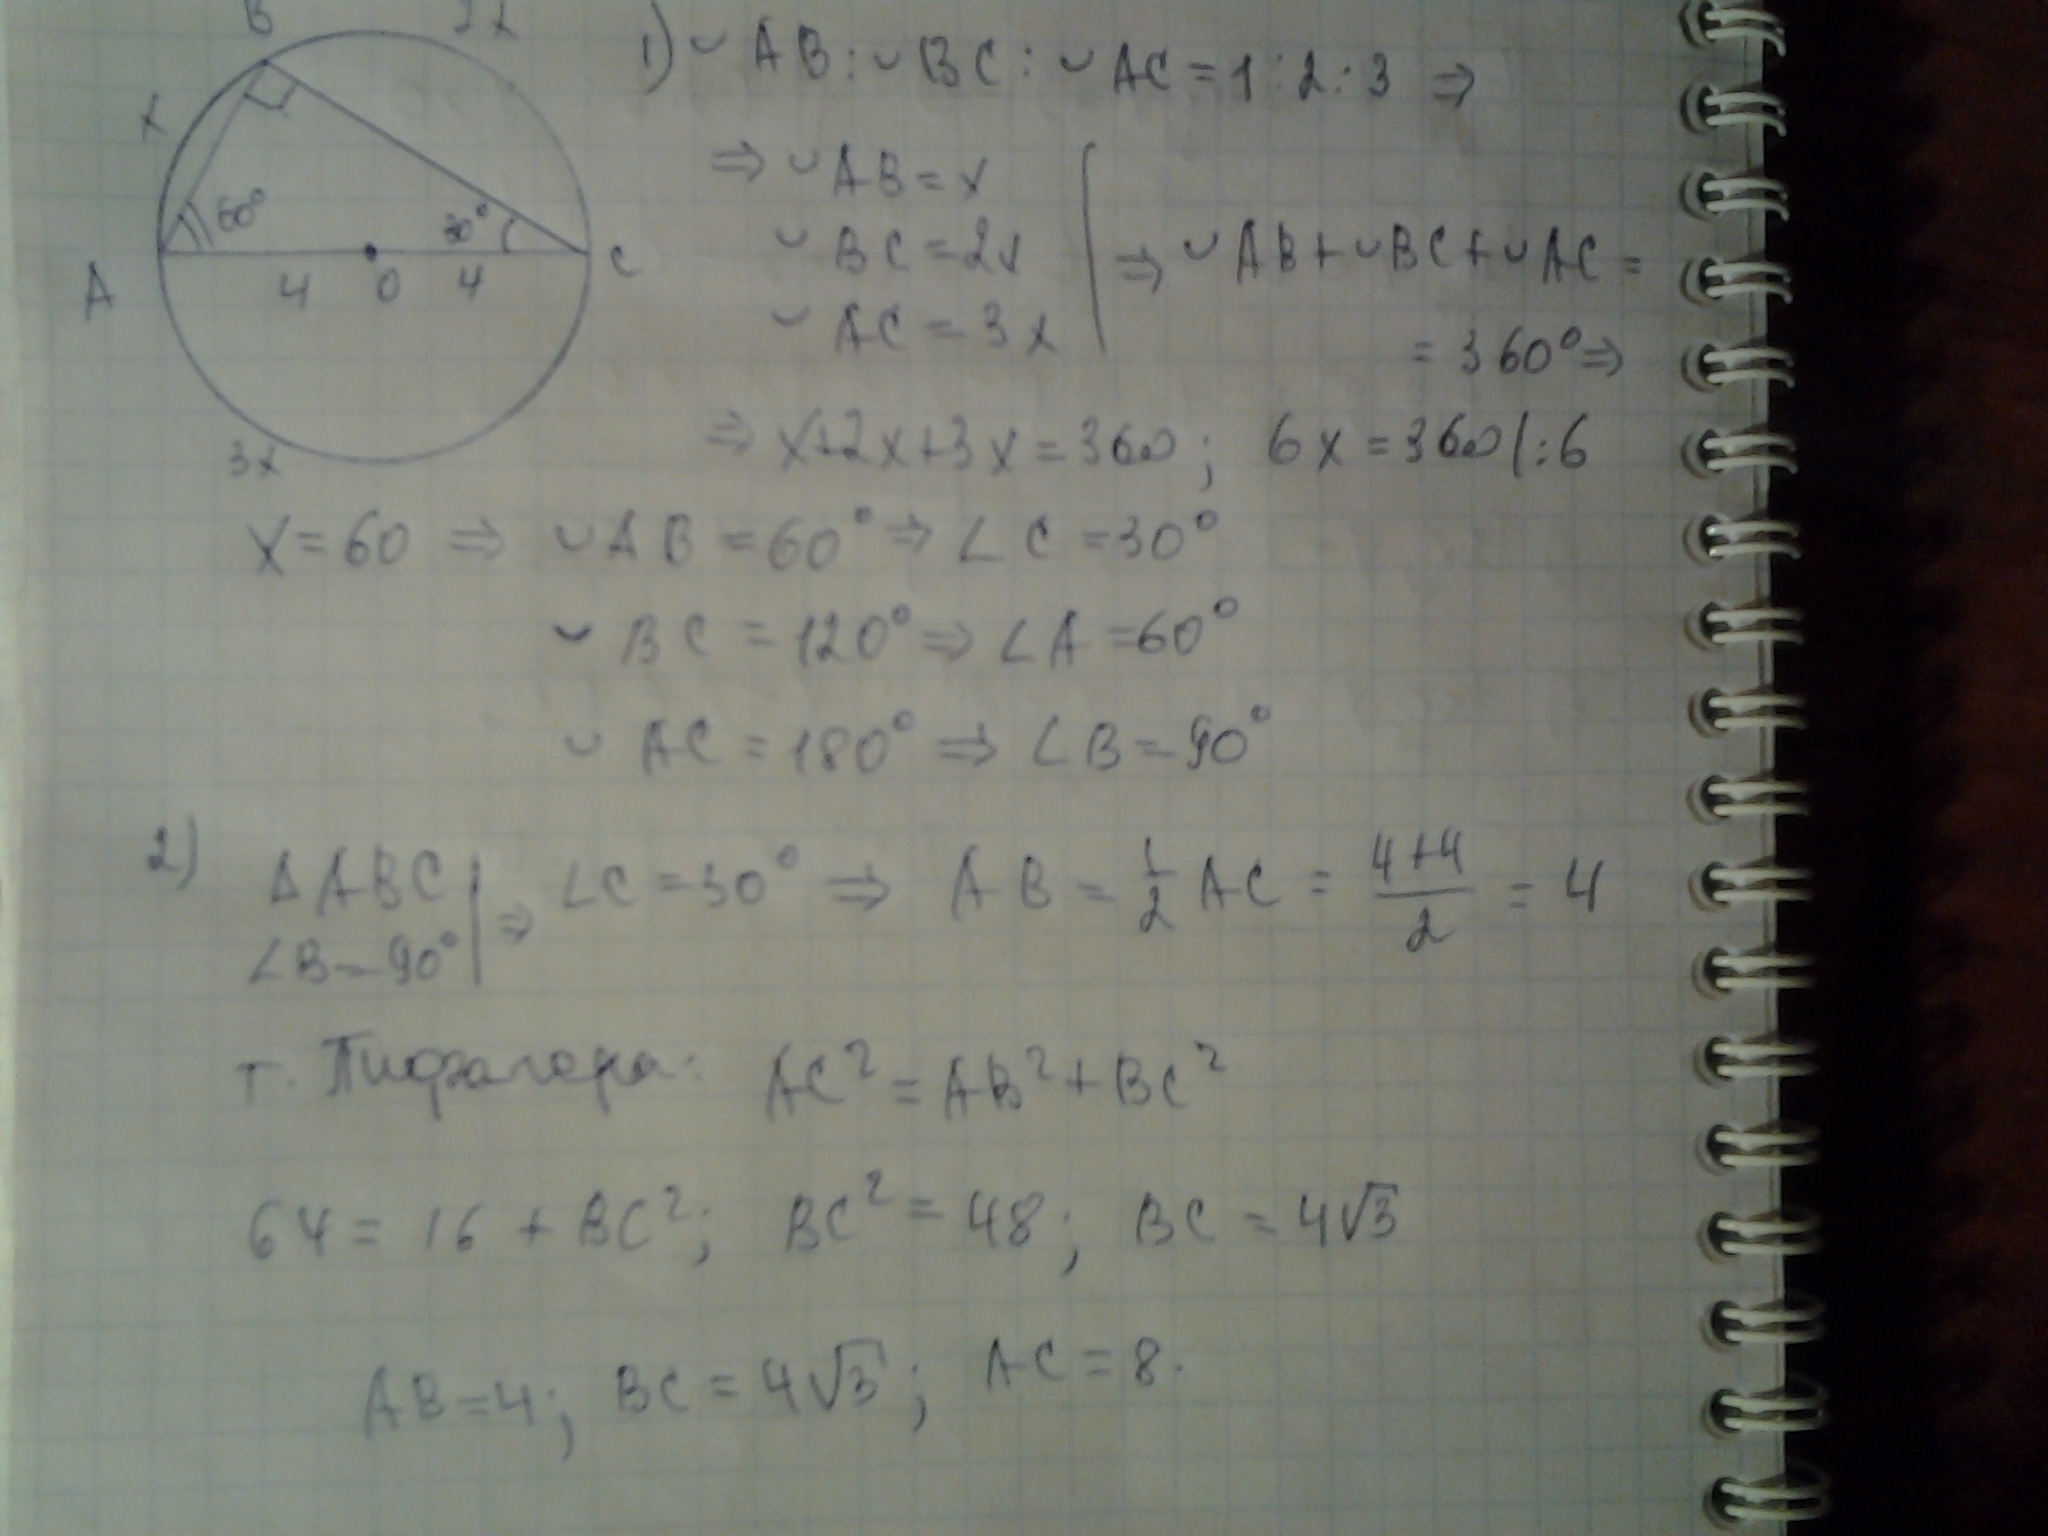 B 2x
x
60° 30°
A 4 O 4 C
3x
1) ◡AB:◡BC:◡AC=1:2:3 ⇒
⇒ ◡AB=x
◡BC=2x
◡AC=3x
⇒ ◡AB+◡BC+◡AC=
=360°⇒
⇒ x+2x+3x=360; 6x=360|:6
x=60 ⇒ ◡AB=60°⇒∠C=30°
◡BC=120°⇒∠A=60°
◡AC=180°⇒∠B=90°
2) ΔABC | ⇒ ∠C=30° ⇒ AB=1/2 AC=(4+4)/2=4
∠B=90°
т. Пифагора: AC²=AB²+BC²
64=16+BC²; BC²=48; BC=4√3
AB=4; BC=4√3; AC=8.